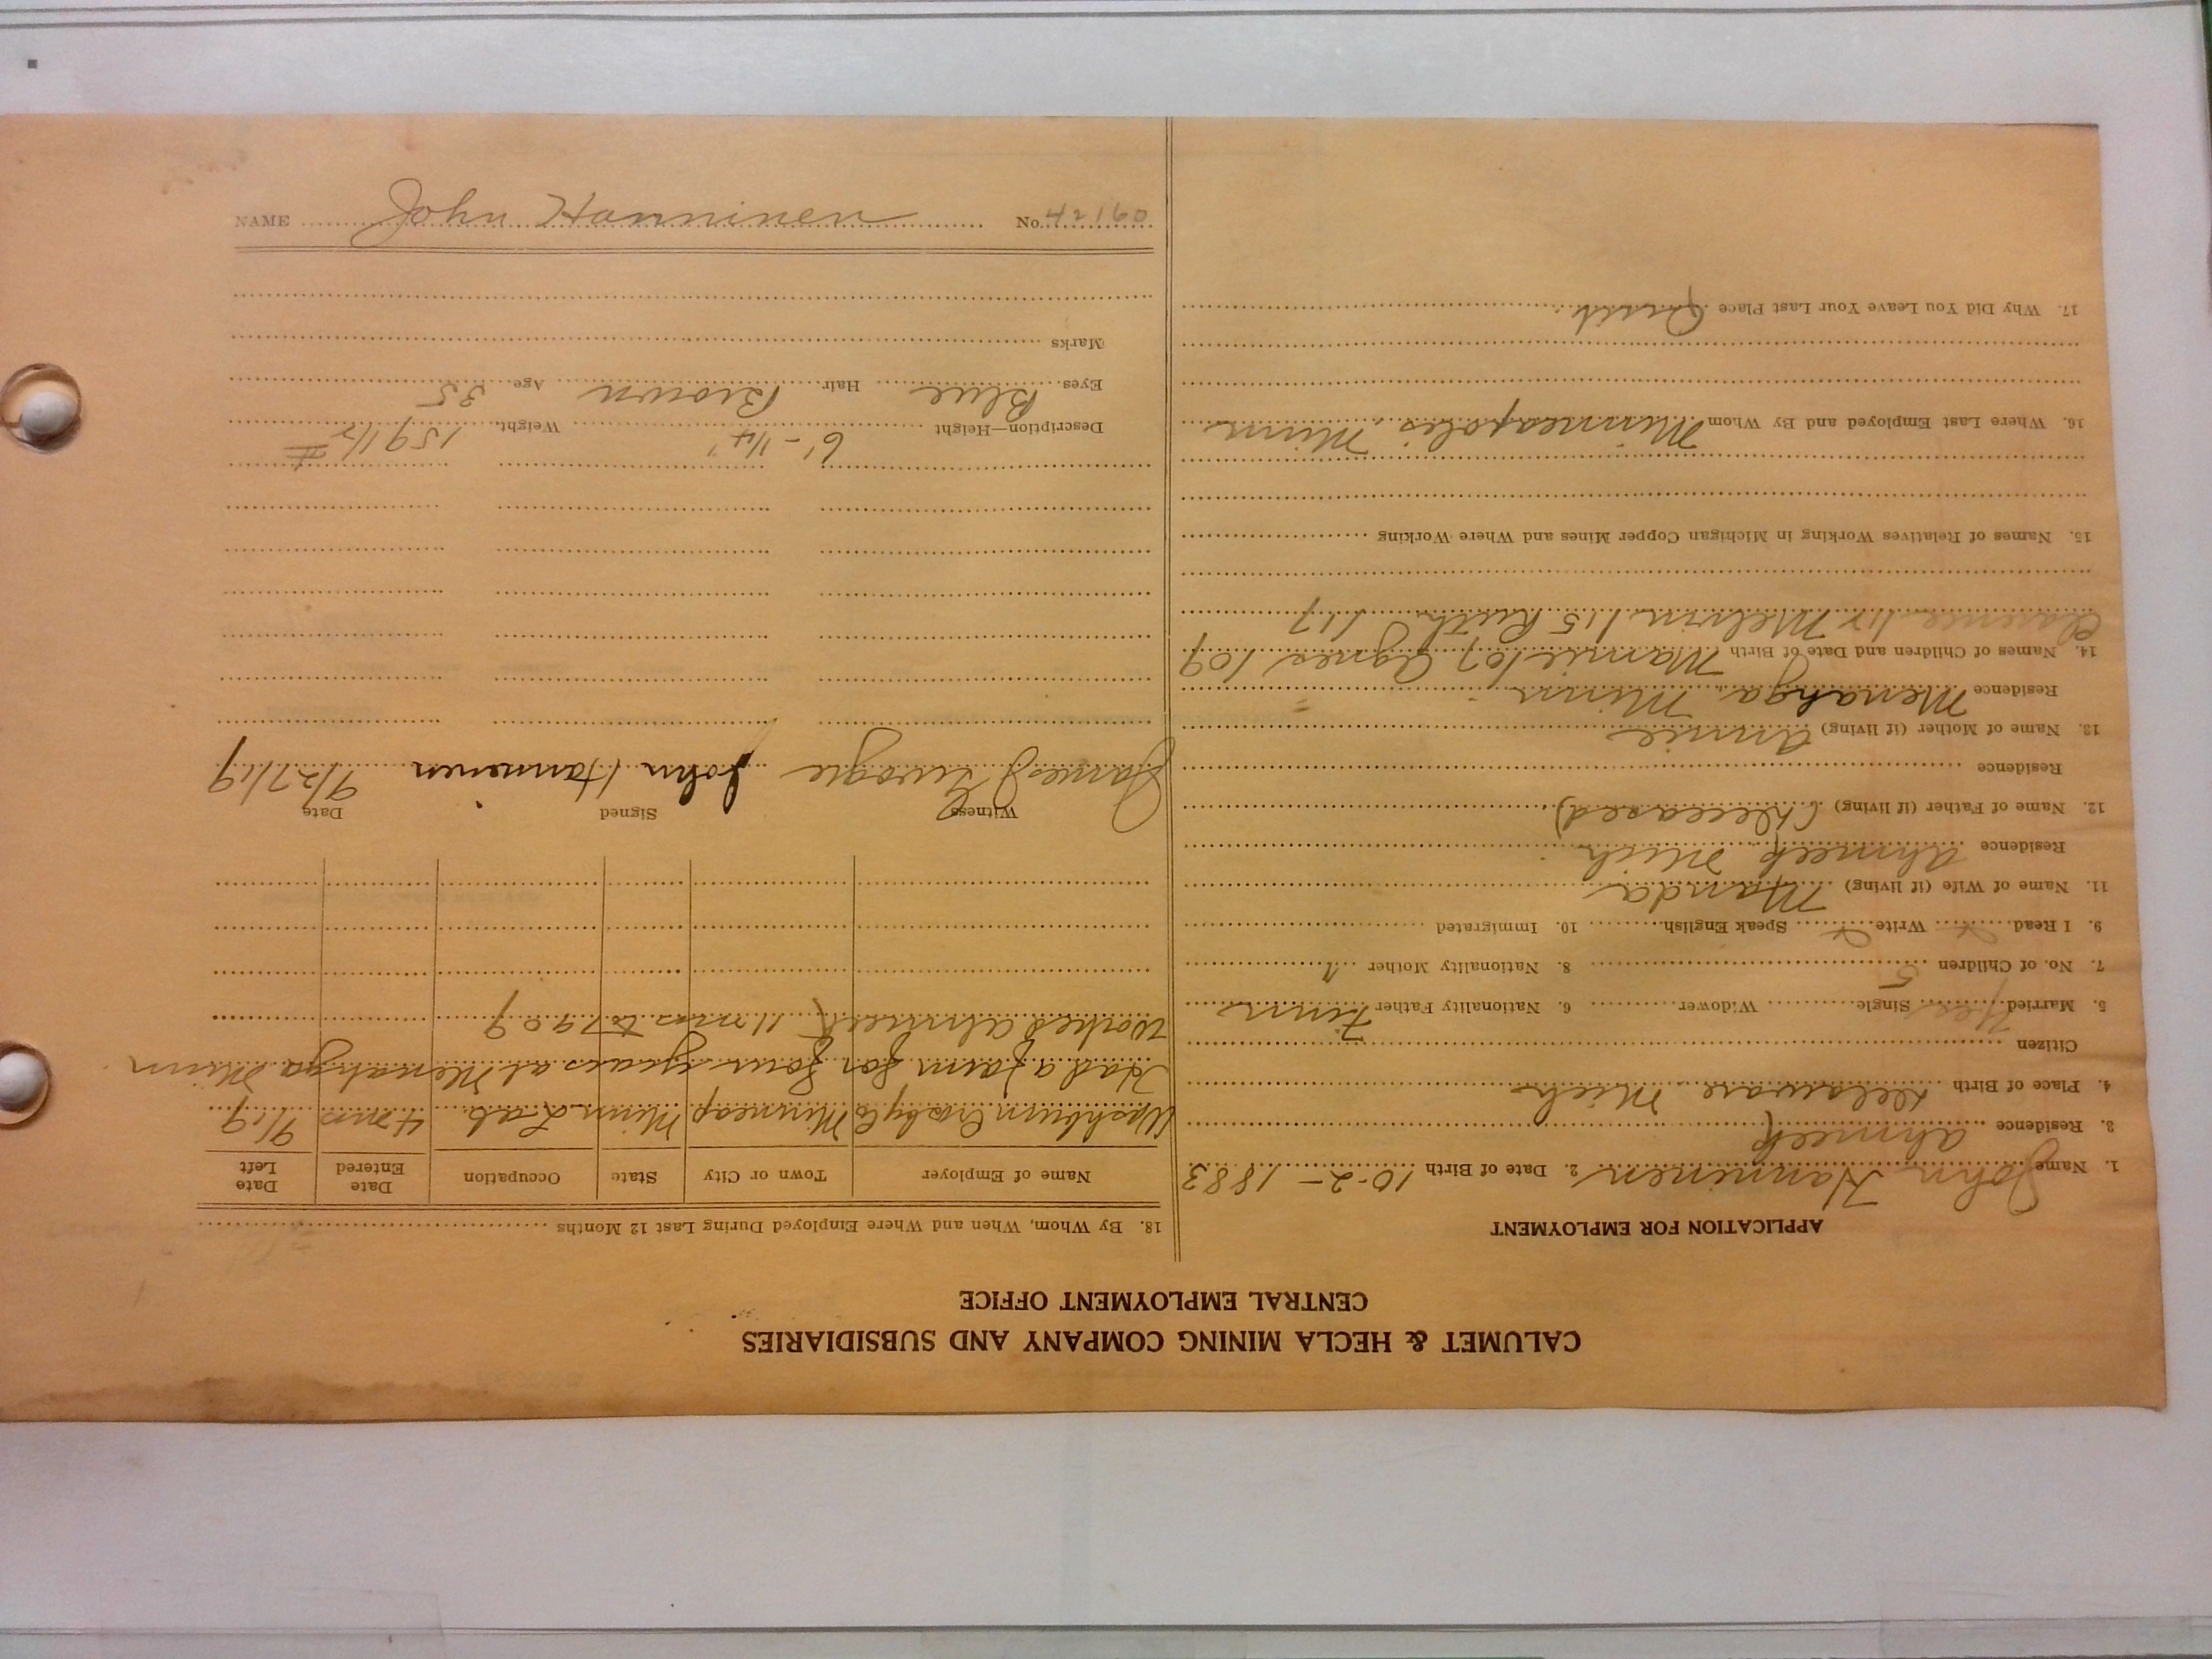 CALUMET & HECLA MINING COMPANY AND SUBSIDIARIES
CENTRAL EMPLOYMENT OFFICE
APPLICATION FOR EMPLOYMENT
1. Name John Hanninen 2. Date of Birth 10-2-1883
3. Residence Ahmeek
4. Place of Birth Delaware Mich
Citizen
5. Married Yes Single Widower 6. Nationality Father Finn
7. No. of Children 5 8. Nationality Mother "
9. I Read Write Speak English 10. Immigrated
11. Name of Wife (if living) Manda
Residence Ahmeek Mich
12. Name of Father (if living) (Deceased)
Residence
13. Name of Mother (if living) Annie
Residence Menahga Minn
14. Names of Children and Date of Birth Mamie 107 Agnes 109
Clarence Melvin 115 Ruth 117
15. Names of Relatives Working in Michigan Copper Mines and Where Working
16. Where Last Employed and By Whom Minneapolis Minn
17. Why Did You Leave Your Last Place Quit
18. By Whom, When and Where Employed During Last 12 Months
Name of Employer Town or City State Occupation Date Entered Date Left
Washburn Crosby Co Minneap Minn Lab 4 mos 9/19
Had a farm for four years at Menahga Minn
Worked Ahmeek 11 mos to 1909
Witness Signed Date
James John Hanninen 9/27/19
Description—Height 6'-1/4" Weight 159 1/2 #
Eyes Blue Hair Brown Age 35
Marks
NAME John Hanninen No. 42160